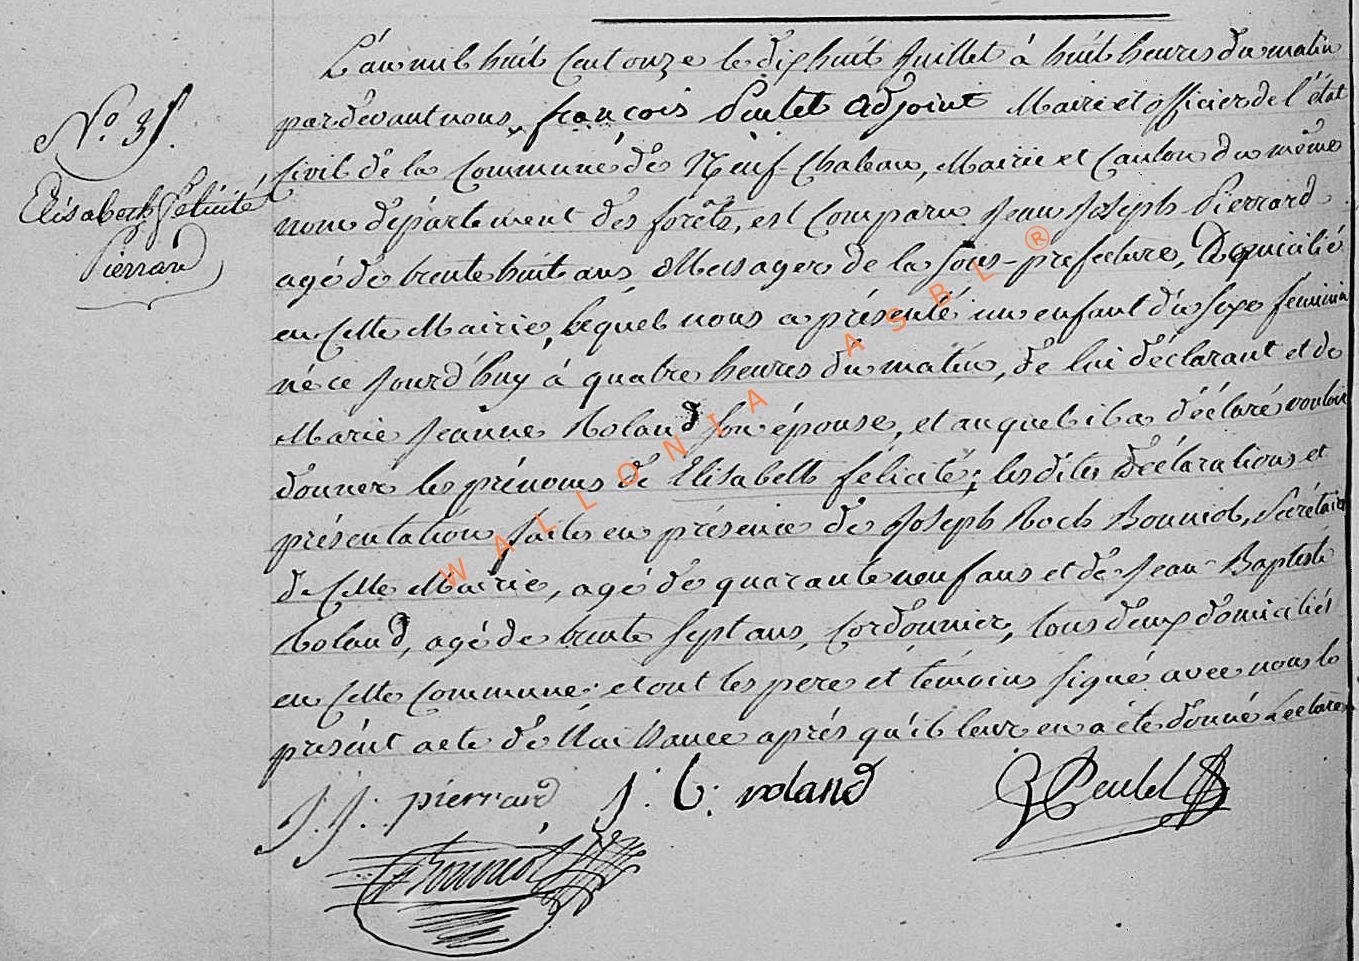 L'an mil huit Cent onze le dix huit Juillet à huit heures du matin
pardevant nous, françois Peutet adjoint Maire et officier de l'état
Civil de la Commune de Neuf-Chateau, Mairie et Canton du même
nom département des forêts, est Comparu Jean Joseph Pierrard
agé de trente huit ans, Messager de la sous-prefecture, Domicilié
en Cette Mairie, lequel nous a présenté un enfant du sexe feminin
né ce Jourd'huy à quatre heures du matin, de lui déclarant et de
Marie Jeanne Roland son épouse, et auquel il a déclaré vouloir
donner les prénoms de Elisabeth félicité; les dites déclarations et
présentation faites en présence de Joseph Roch Bonniol, Secrétaire
de Cette Mairie, agé de quarante neuf ans et de Jean Baptiste
Roland, agé de trente sept ans, Cordonnier, tous deux domiciliés
en Cette Commune; et ont les pere et témoins signé avec nous le
présent acte de Naissance après qu'il leur en a été donné Lecture
N.º 35.
Elisabeth félicité
Pierrard
J. J. pierrard
J. b. roland
Peutet
Bonniol
WALLONIA ASBL ®